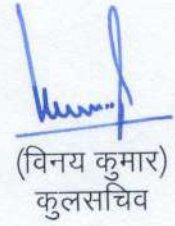 (विनय कुमार)
कुलसचिव